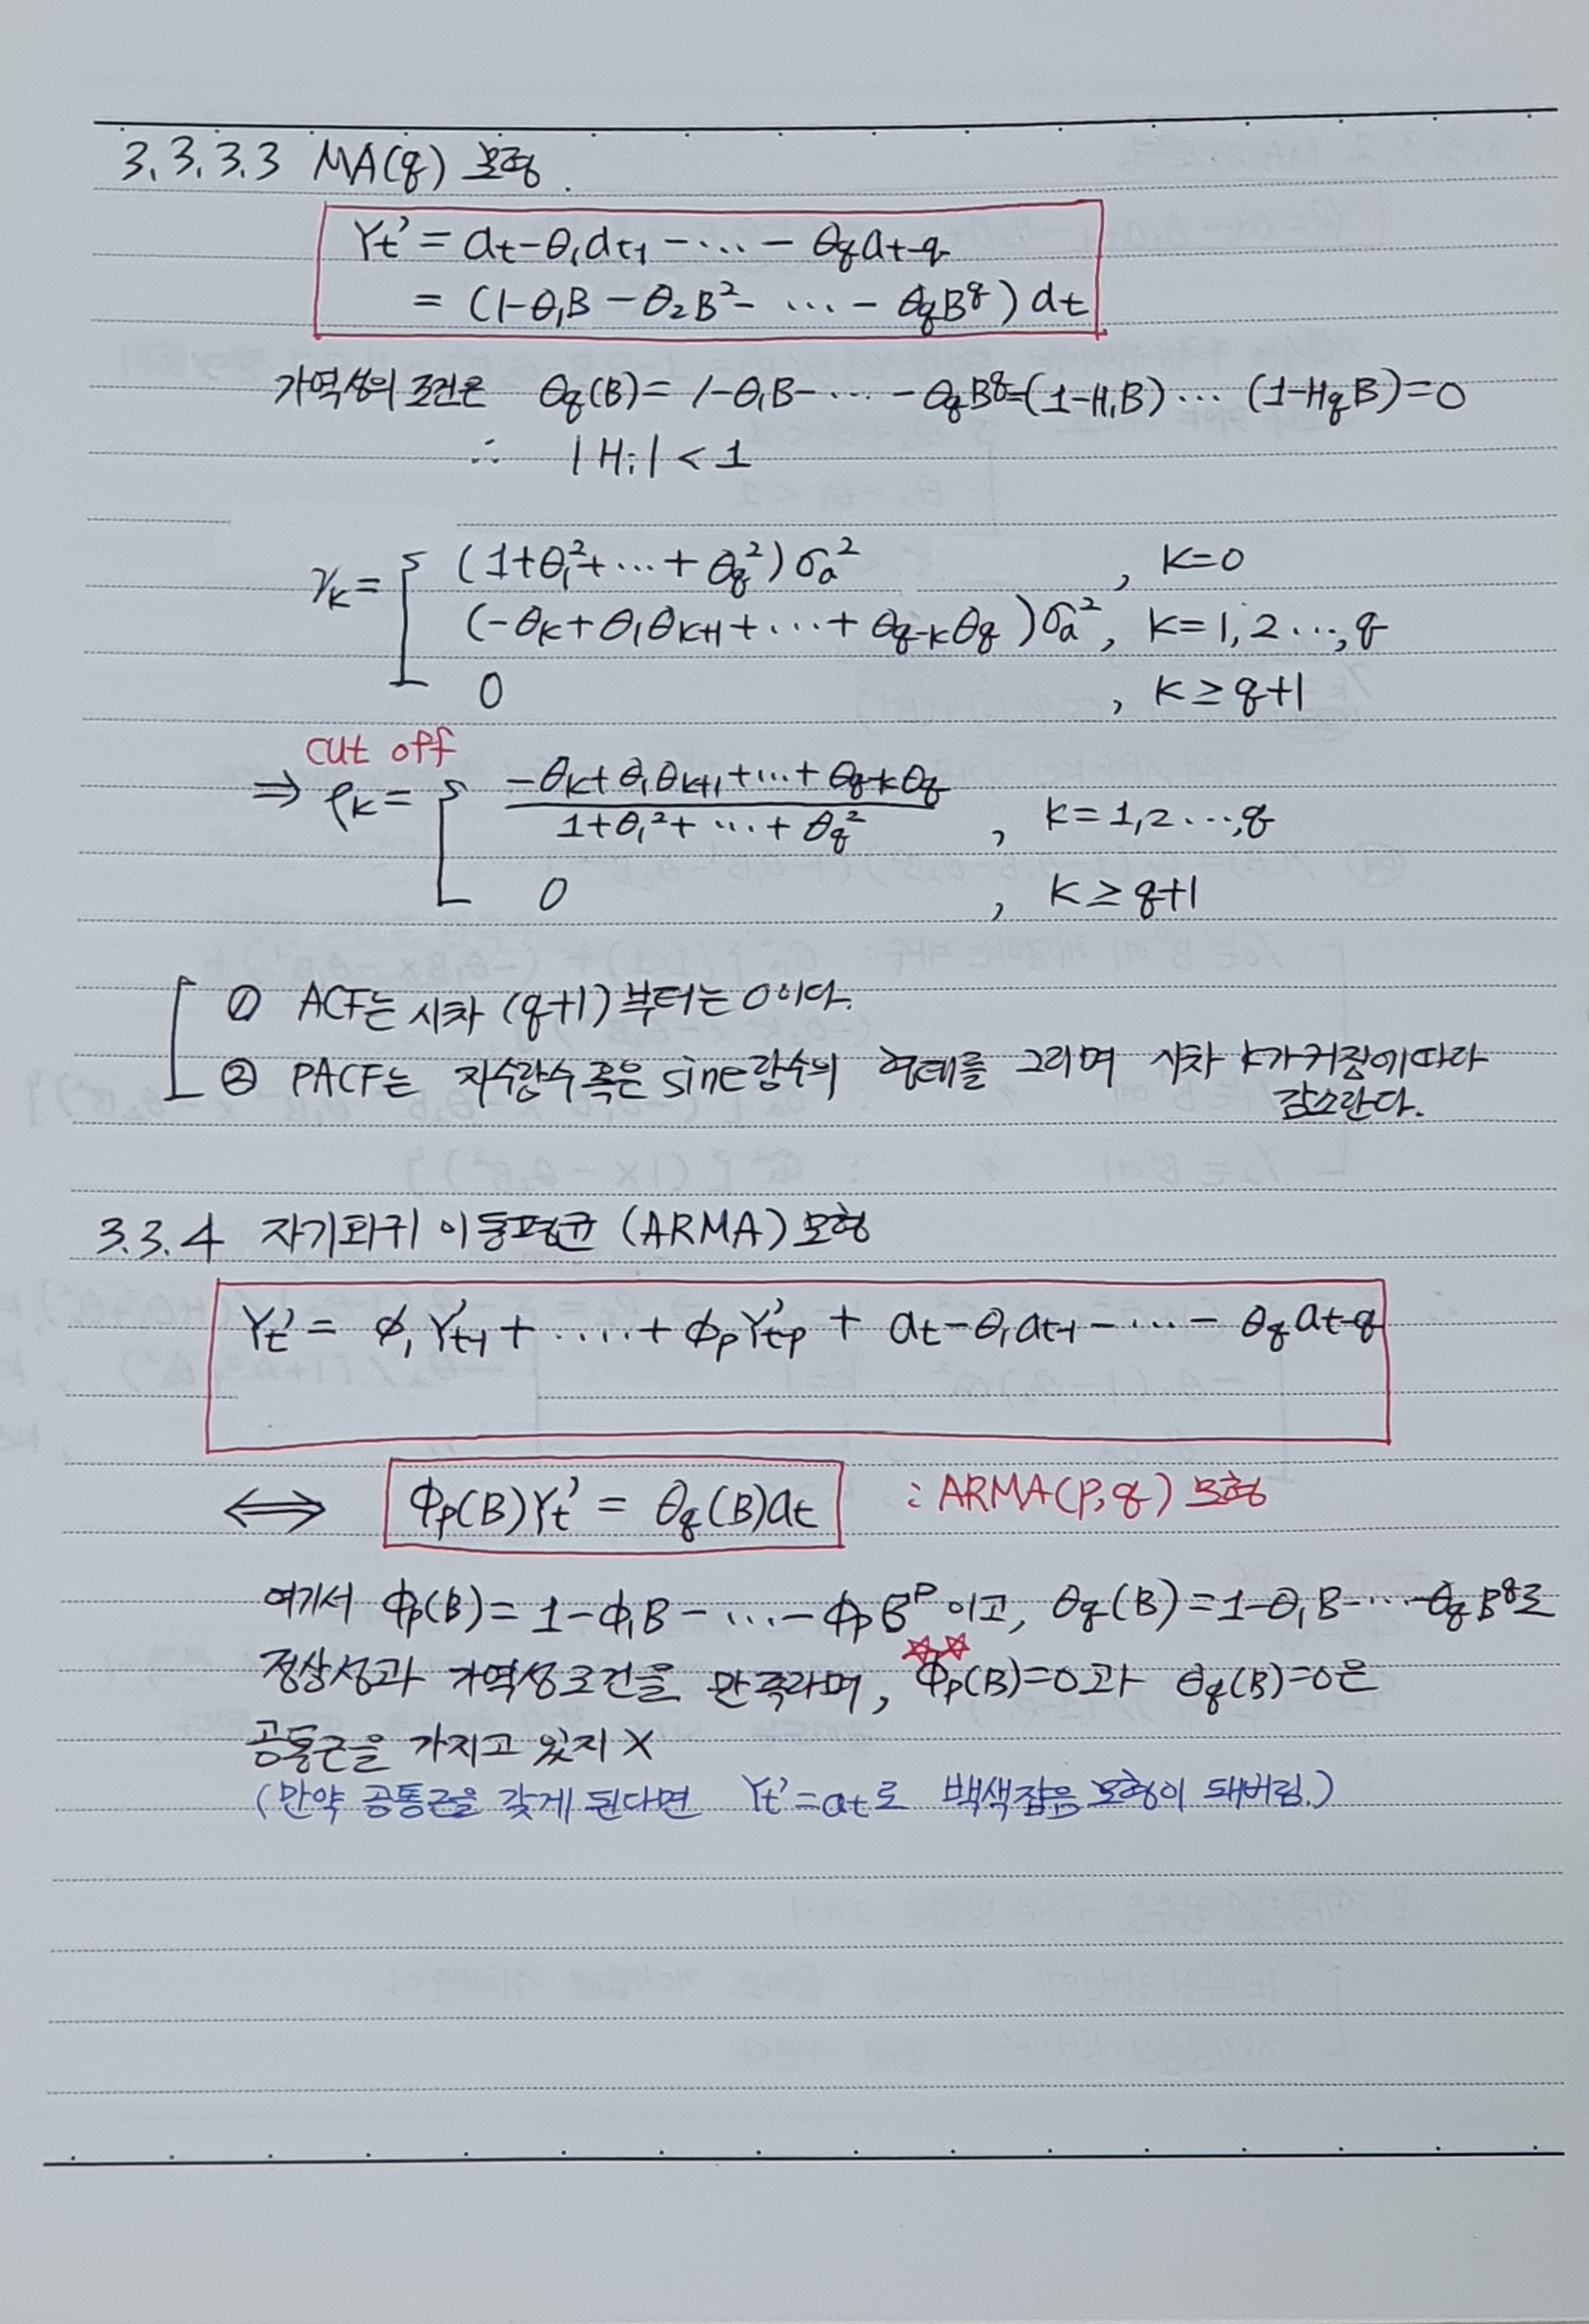 3.3.3.3 MA(q) 모형.
Yt' = at-θ1at-1 -...- θqat-q
= (1-θ1B -θ2B²- ... - θqB^q) at
가역성의 조건은 θq(B)= 1-θ1B-...-θqB^q=(1-H1B)... (1-HqB)=0
∴ |Hi| < 1
γk= (1+θ1²+...+ θq²)σa² , k=0
(-θk+θ1θk+1+...+ θq-kθq)σa², k=1,2...,q
0 , k ≥ q+1
cut off
⇒ ρk= (-θk+θ1θk+1+...+ θq-kθq) / (1+θ1²+...+ θq²) , k=1,2...,q
0 , k ≥ q+1
① ACF는 시차 (q+1)부터는 0이다.
② PACF는 지수함수 혹은 sine함수의 형태를 그리며 시차 k가 커짐에 따라
감소한다.
3.3.4 자기회귀 이동평균 (ARMA) 모형
Yt' = φ1Y't-1 + .... + φpY't-p + at-θ1at-1 -...- θqat-q
⟺ φp(B)Yt' = θq(B)at : ARMA(p,q) 모형
여기서 φp(B)= 1-φ1B-...-φpB^p이고, θq(B)=1-θ1B-...-θqB^q로
정상성과 가역성조건을 만족하며, ☆☆φp(B)=0과 θq(B)=0은
공통근을 가지고 있지 X
(만약 공통근을 갖게 된다면 Yt'=at로 백색잡음 모형이 돼버림.)